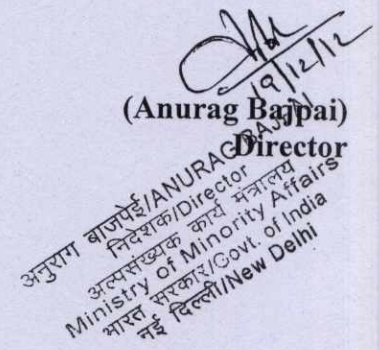 19/12/12
(Anurag Bajpai)
Director
अनुराग बाजपेई/ANURAG BAJPAI
निदेशक/Director
अल्पसंख्यक कार्य मंत्रालय
Ministry of Minority Affairs
भारत सरकार/Govt. of India
नई दिल्ली/New Delhi